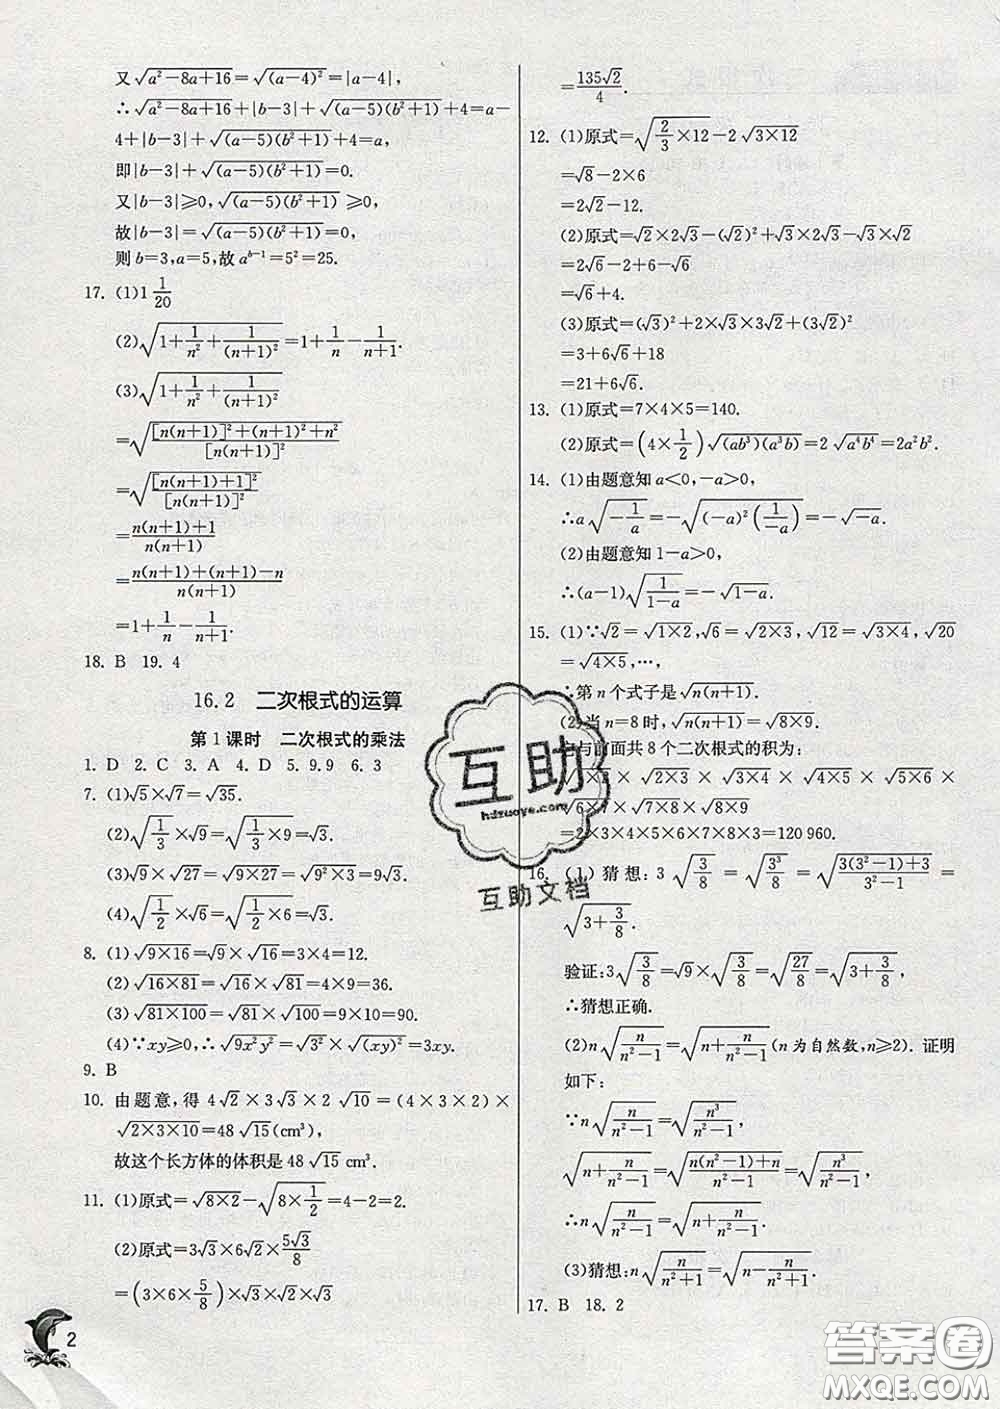 又√(a²－8a＋16)＝√((a－4)²)＝|a－4|,
∴√(a²－8a＋16)＋|b－3|＋√((a－5)(b²＋1))＋4＝a－
4＋|b－3|＋√((a－5)(b²＋1))＋4＝a,
即|b－3|＋√((a－5)(b²＋1))＝0.
又|b－3|≥0,√((a－5)(b²＋1))≥0,
故|b－3|＝√((a－5)(b²＋1))＝0,
则b＝3,a＝5,故a^(b－1)＝5²＝25.
17. (1)1 1/20
(2)√(1＋1/n²＋1/(n＋1)²)＝1＋1/n－1/(n＋1).
(3)√(1＋1/n²＋1/(n＋1)²)
＝√(([n(n＋1)]²＋(n＋1)²＋n²)/[n(n＋1)]²)
＝√([n(n＋1)＋1]²/[n(n＋1)]²)
＝(n(n＋1)＋1)/(n(n＋1))
＝(n(n＋1)＋(n＋1)－n)/(n(n＋1))
＝1＋1/n－1/(n＋1).
18. B 19. 4
16.2 二次根式的运算
第1课时 二次根式的乘法
1. D 2. C 3. A 4. D 5. 9.9 6. 3
7. (1)√5×√7＝√35.
(2)√(1/3)×√9＝√(1/3×9)＝√3.
(3)√9×√27＝√(9×27)＝√(9²×3)＝9√3.
(4)√(1/2)×√6＝√(1/2×6)＝√3.
8. (1)√(9×16)＝√9×√16＝3×4＝12.
(2)√(16×81)＝√16×√81＝4×9＝36.
(3)√(81×100)＝√81×√100＝9×10＝90.
(4)∵xy≥0,∴√(9x²y²)＝√(3²)×√((xy)²)＝3xy.
9. B
10. 由题意,得4√2×3√3×2√10＝(4×3×2)×
√(2×3×10)＝48√15(cm³),
故这个长方体的体积是48√15 cm³.
11. (1)原式＝√(8×2)－√(8×1/2)＝4－2＝2.
(2)原式＝3√3×6√2×5√3/8
＝(3×6×5/8)×√3×√2×√3
2
＝135√2/4.
12. (1)原式＝√(2/3×12)－2√(3×12)
＝√8－2×6
＝2√2－12.
(2)原式＝√2×2√3－(√2)²＋√3×2√3－√3×√2
＝2√6－2＋6－√6
＝√6＋4.
(3)原式＝(√3)²＋2×√3×3√2＋(3√2)²
＝3＋6√6＋18
＝21＋6√6.
13. (1)原式＝7×4×5＝140.
(2)原式＝(4×1/2)√((ab³)(a³b))＝2√(a⁴b⁴)＝2a²b².
14. (1)由题意知a＜0,－a＞0,
∴a√(－1/a)＝－√((－a)²(1/－a))＝－√(－a).
(2)由题意知1－a＞0,
∴(a－1)√(1/(1－a))＝－√(1－a).
15. (1)∵√2＝√(1×2),√6＝√(2×3),√12＝√(3×4),√20
＝√(4×5),…,
∴第n个式子是√(n(n＋1)).
(2)当n＝8时,√(n(n＋1))＝√(8×9).
与前面共8个二次根式的积为:
√(1×2)×√(2×3)×√(3×4)×√(4×5)×√(5×6)×
√(6×7)×√(7×8)×√(8×9)
＝2×3×4×5×6×7×8×3＝120 960.
16. (1)猜想:3√(3/8)＝√(3³/8)＝√((3(3²－1)＋3)/(3²－1))＝
√(3＋3/8).
验证:3√(3/8)＝√9×√(3/8)＝√(27/8)＝√(3＋3/8),
∴猜想正确.
(2)n√(n/(n²－1))＝√(n＋n/(n²－1))(n为自然数,n≥2).证明
如下:
∵n√(n/(n²－1))＝√(n³/(n²－1)),
√(n＋n/(n²－1))＝√((n(n²－1)＋n)/(n²－1))＝√(n³/(n²－1)),
∴n√(n/(n²－1))＝√(n＋n/(n²－1)).
(3)猜想:n√(n/(n²＋1))＝√(n－n/(n²＋1)).
17. B 18. 2
互助
hdzuoye.com
互助文档
答案圈
MXQE.COM